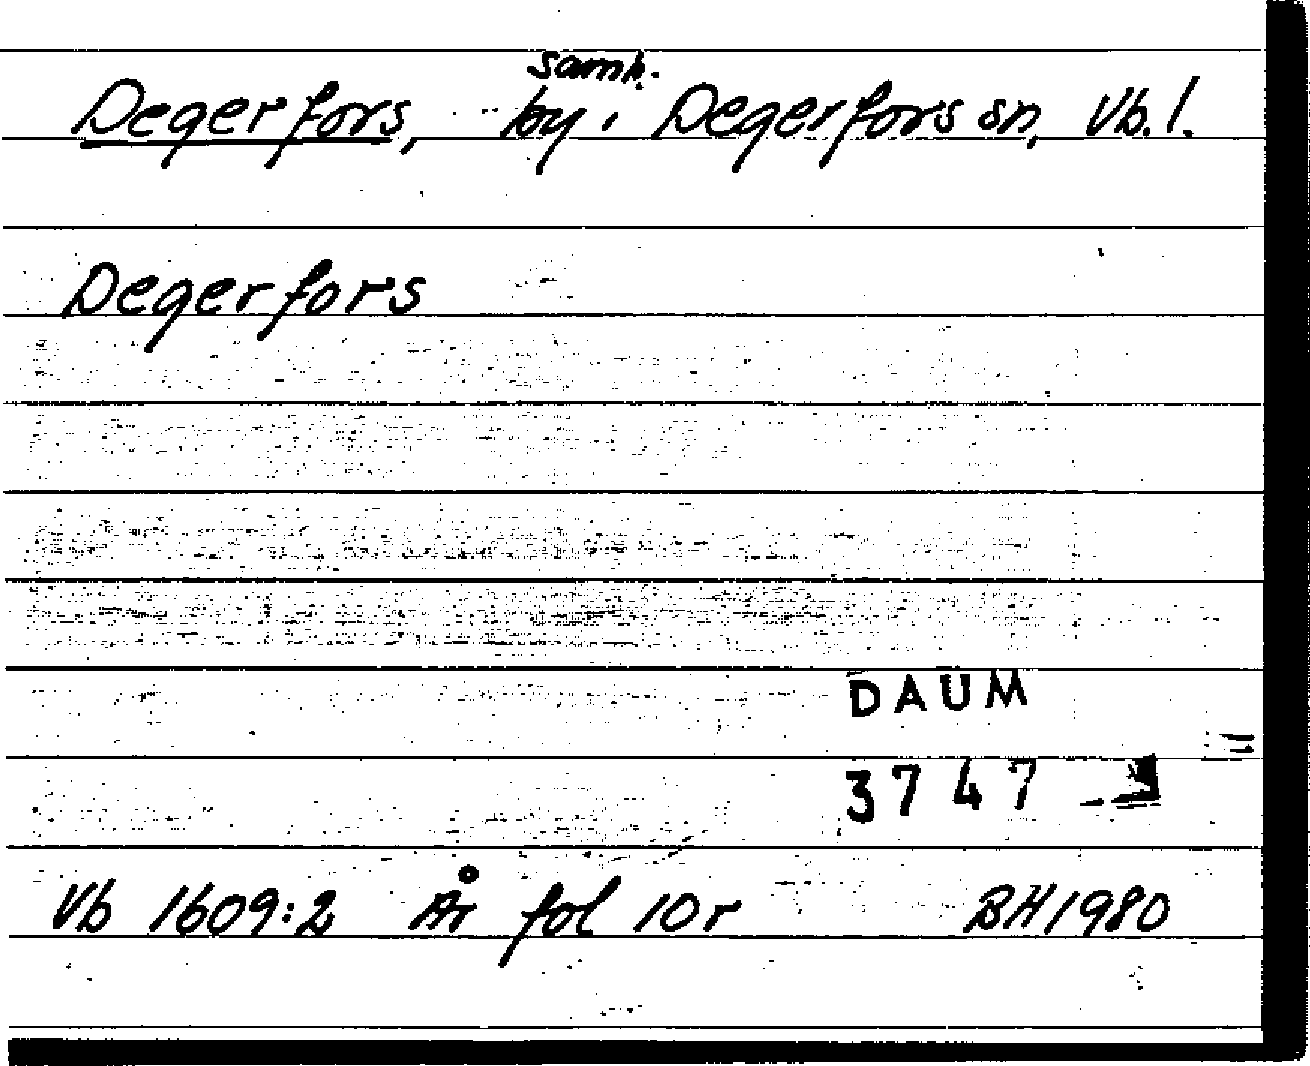 samh.
Degerfors, by i Degerfors sn, Vb. l.
Degerfors
DAUM
3747
Vb 1609:2 År fol 10r BH 1980